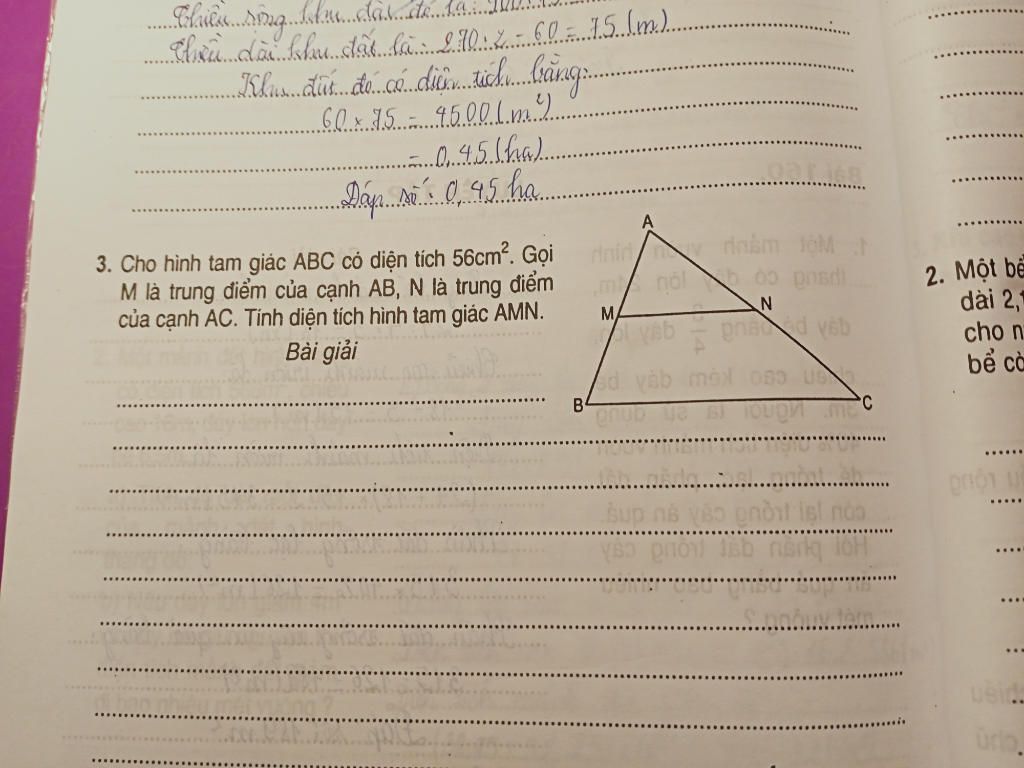 Chiều rộng khu đất đó là:
Chiều dài khu đất là: 270 : 2 - 60 = 75 (m)
Khu đất đó có diện tích bằng:
60 × 75 = 4500 (m²)
= 0,45 (ha)
Đáp số: 0,45 ha
3. Cho hình tam giác ABC có diện tích 56cm². Gọi
M là trung điểm của cạnh AB, N là trung điểm
của cạnh AC. Tính diện tích hình tam giác AMN.
Bài giải
A
M N
B C
2. Một bể
dài 2,
cho n
bể cò